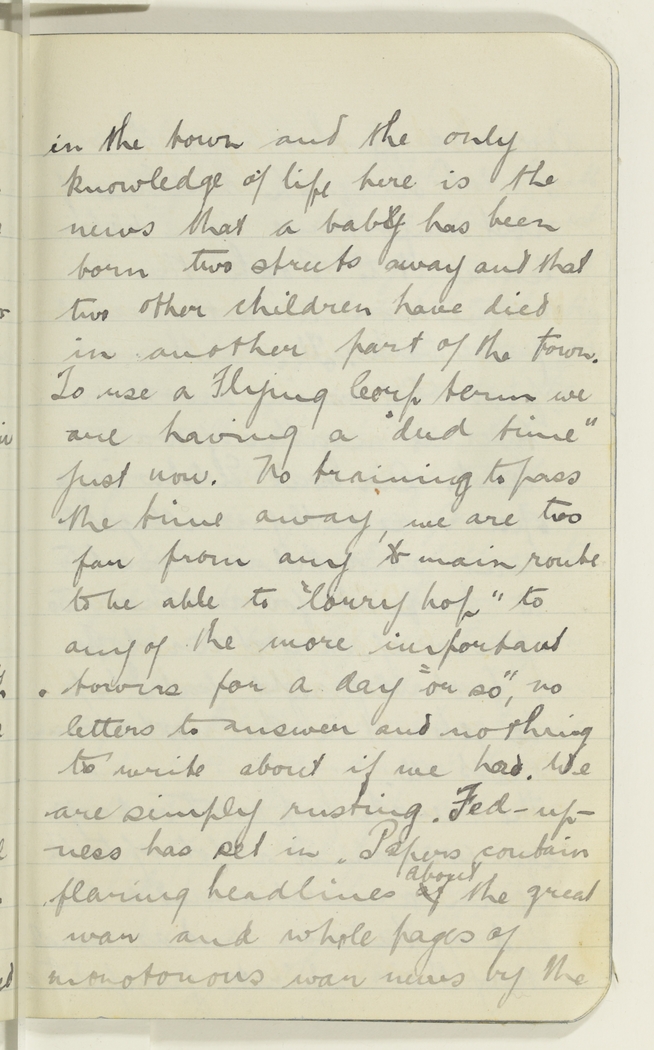 in the town and the only
knowledge of life here is the
news that a baby has been
born two streets away and that
two other children have died
in another part of the town.
To use a Flying Corp term we
are having a "dud time"
just now. No training to pass
the time away, we are too
far from any main route
to be able to "lorry hop" to
any of the more important
towns for a day "or so", no
letters to answer and nothing
to write about if we had. We
are simply rusting. Fed-up-
ness has set in. Papers contain
flaring headlines about the great
war and whole pages of
monotonous war news by the